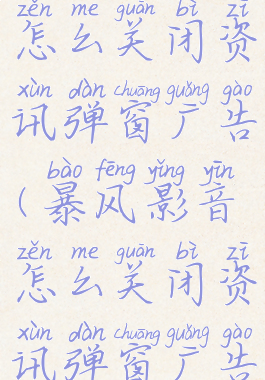 zěn me guān bì zī
怎么关闭资
xùn dàn chuāng guǎng gào
讯弹窗广告
bào fēng yǐng yīn
(暴风影音
zěn me guān bì zī
怎么关闭资
xùn dàn chuāng guǎng gào
讯弹窗广告